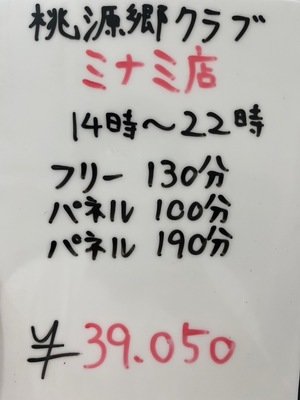 桃源郷クラブ
ミナミ店
14時～22時
フリー 130分
パネル 100分
パネル 190分
¥39.050